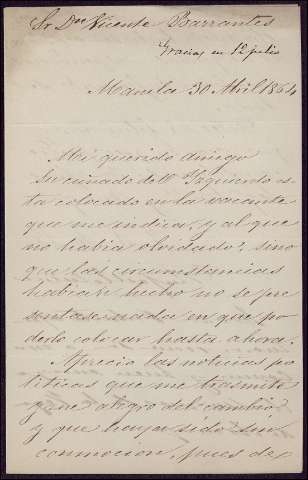 Sr Dn Vicente Barrantes
Gracias en 12 julio
Manila 30 Abril 1864
Mi querido amigo
Su cuñado de V. Yzquierdo es-
ta colocado en la vacante
que me indica, y al que
no habia olvidado, sino
que las circunstancias
habian hecho no se pre
sentase nada en que po
derlo colocar hasta ahora.
Aprecio las noticias po
liticas que me trasmite
y me alegro del cambio
y que haya sido sin
conmocion, pues de